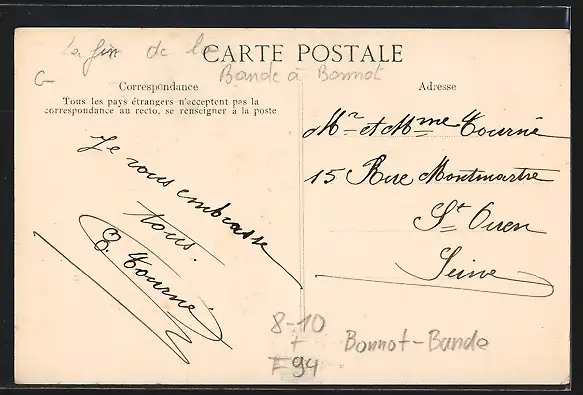 La fin de la
CARTE POSTALE
Bande à Bonnot
G
Correspondance
Tous les pays étrangers n'acceptent pas la
correspondance au recto, se renseigner à la poste
Je vous embrasse
tous.
E. Tourné
Adresse
Mr et Mme Tourné
15 Rue Montmartre
St Ouen
Seine
8-10
+
F94
Bonnot-Bande